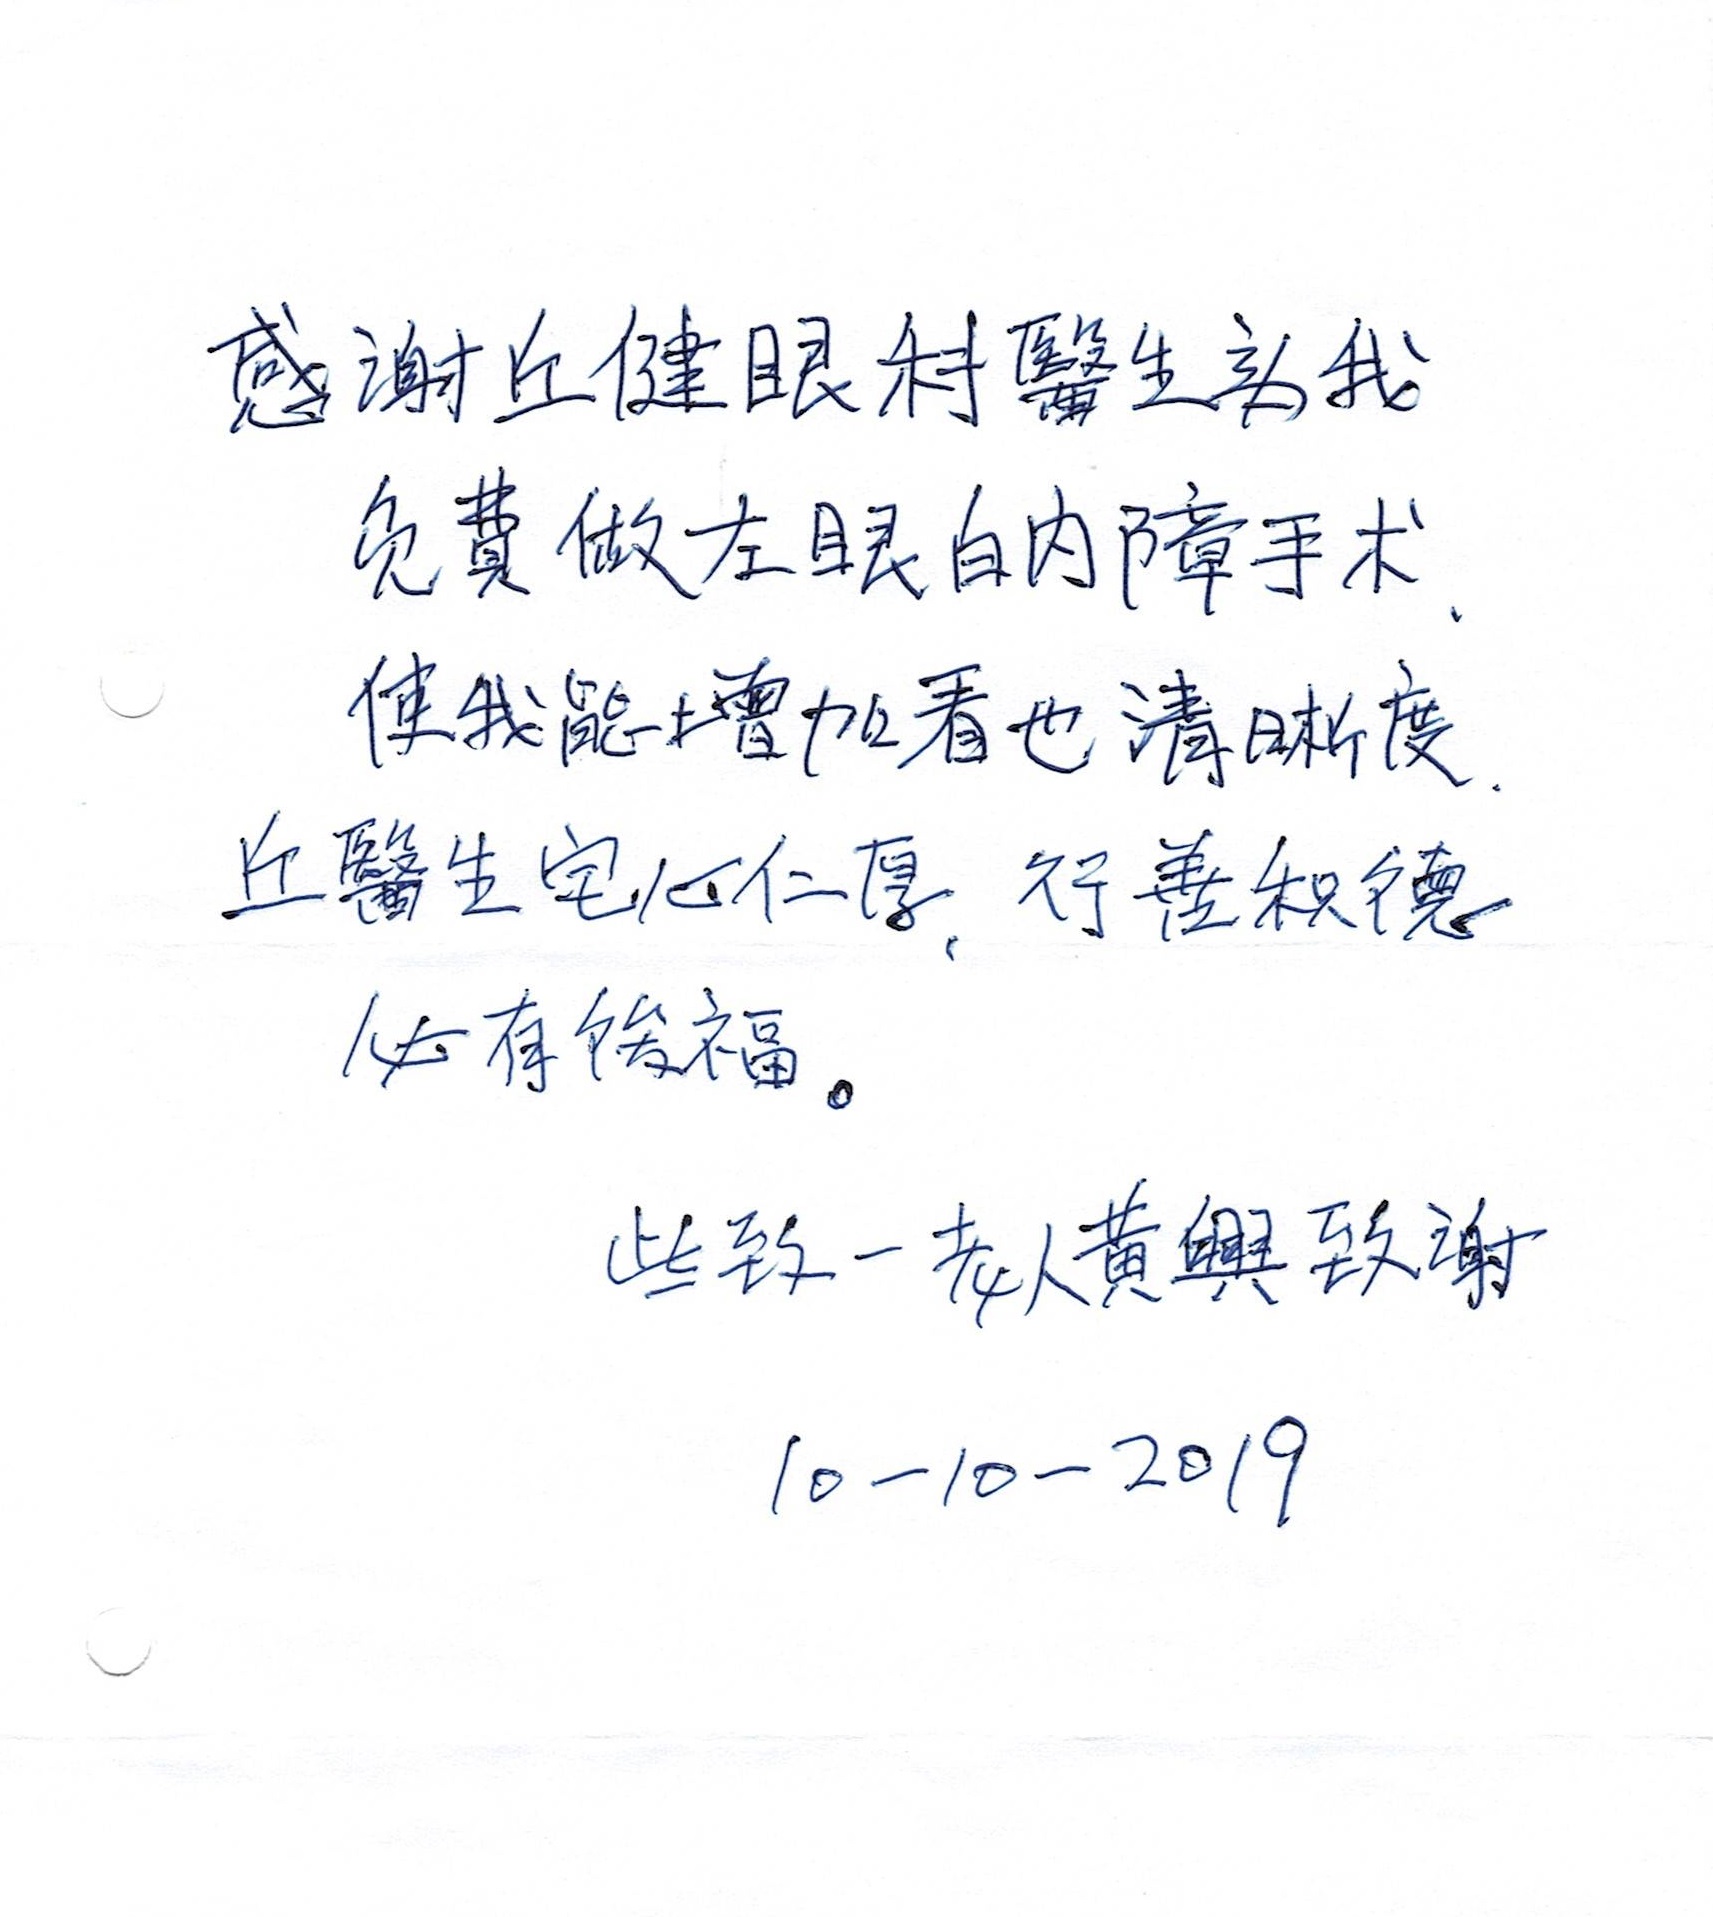 感謝丘健眼科醫生為我
免費做左眼白内障手术、
使我能增加看也清晰度.
丘醫生宅心仁厚、行善积德
必有後福。
些致一老人黃興致謝
10-10-2019